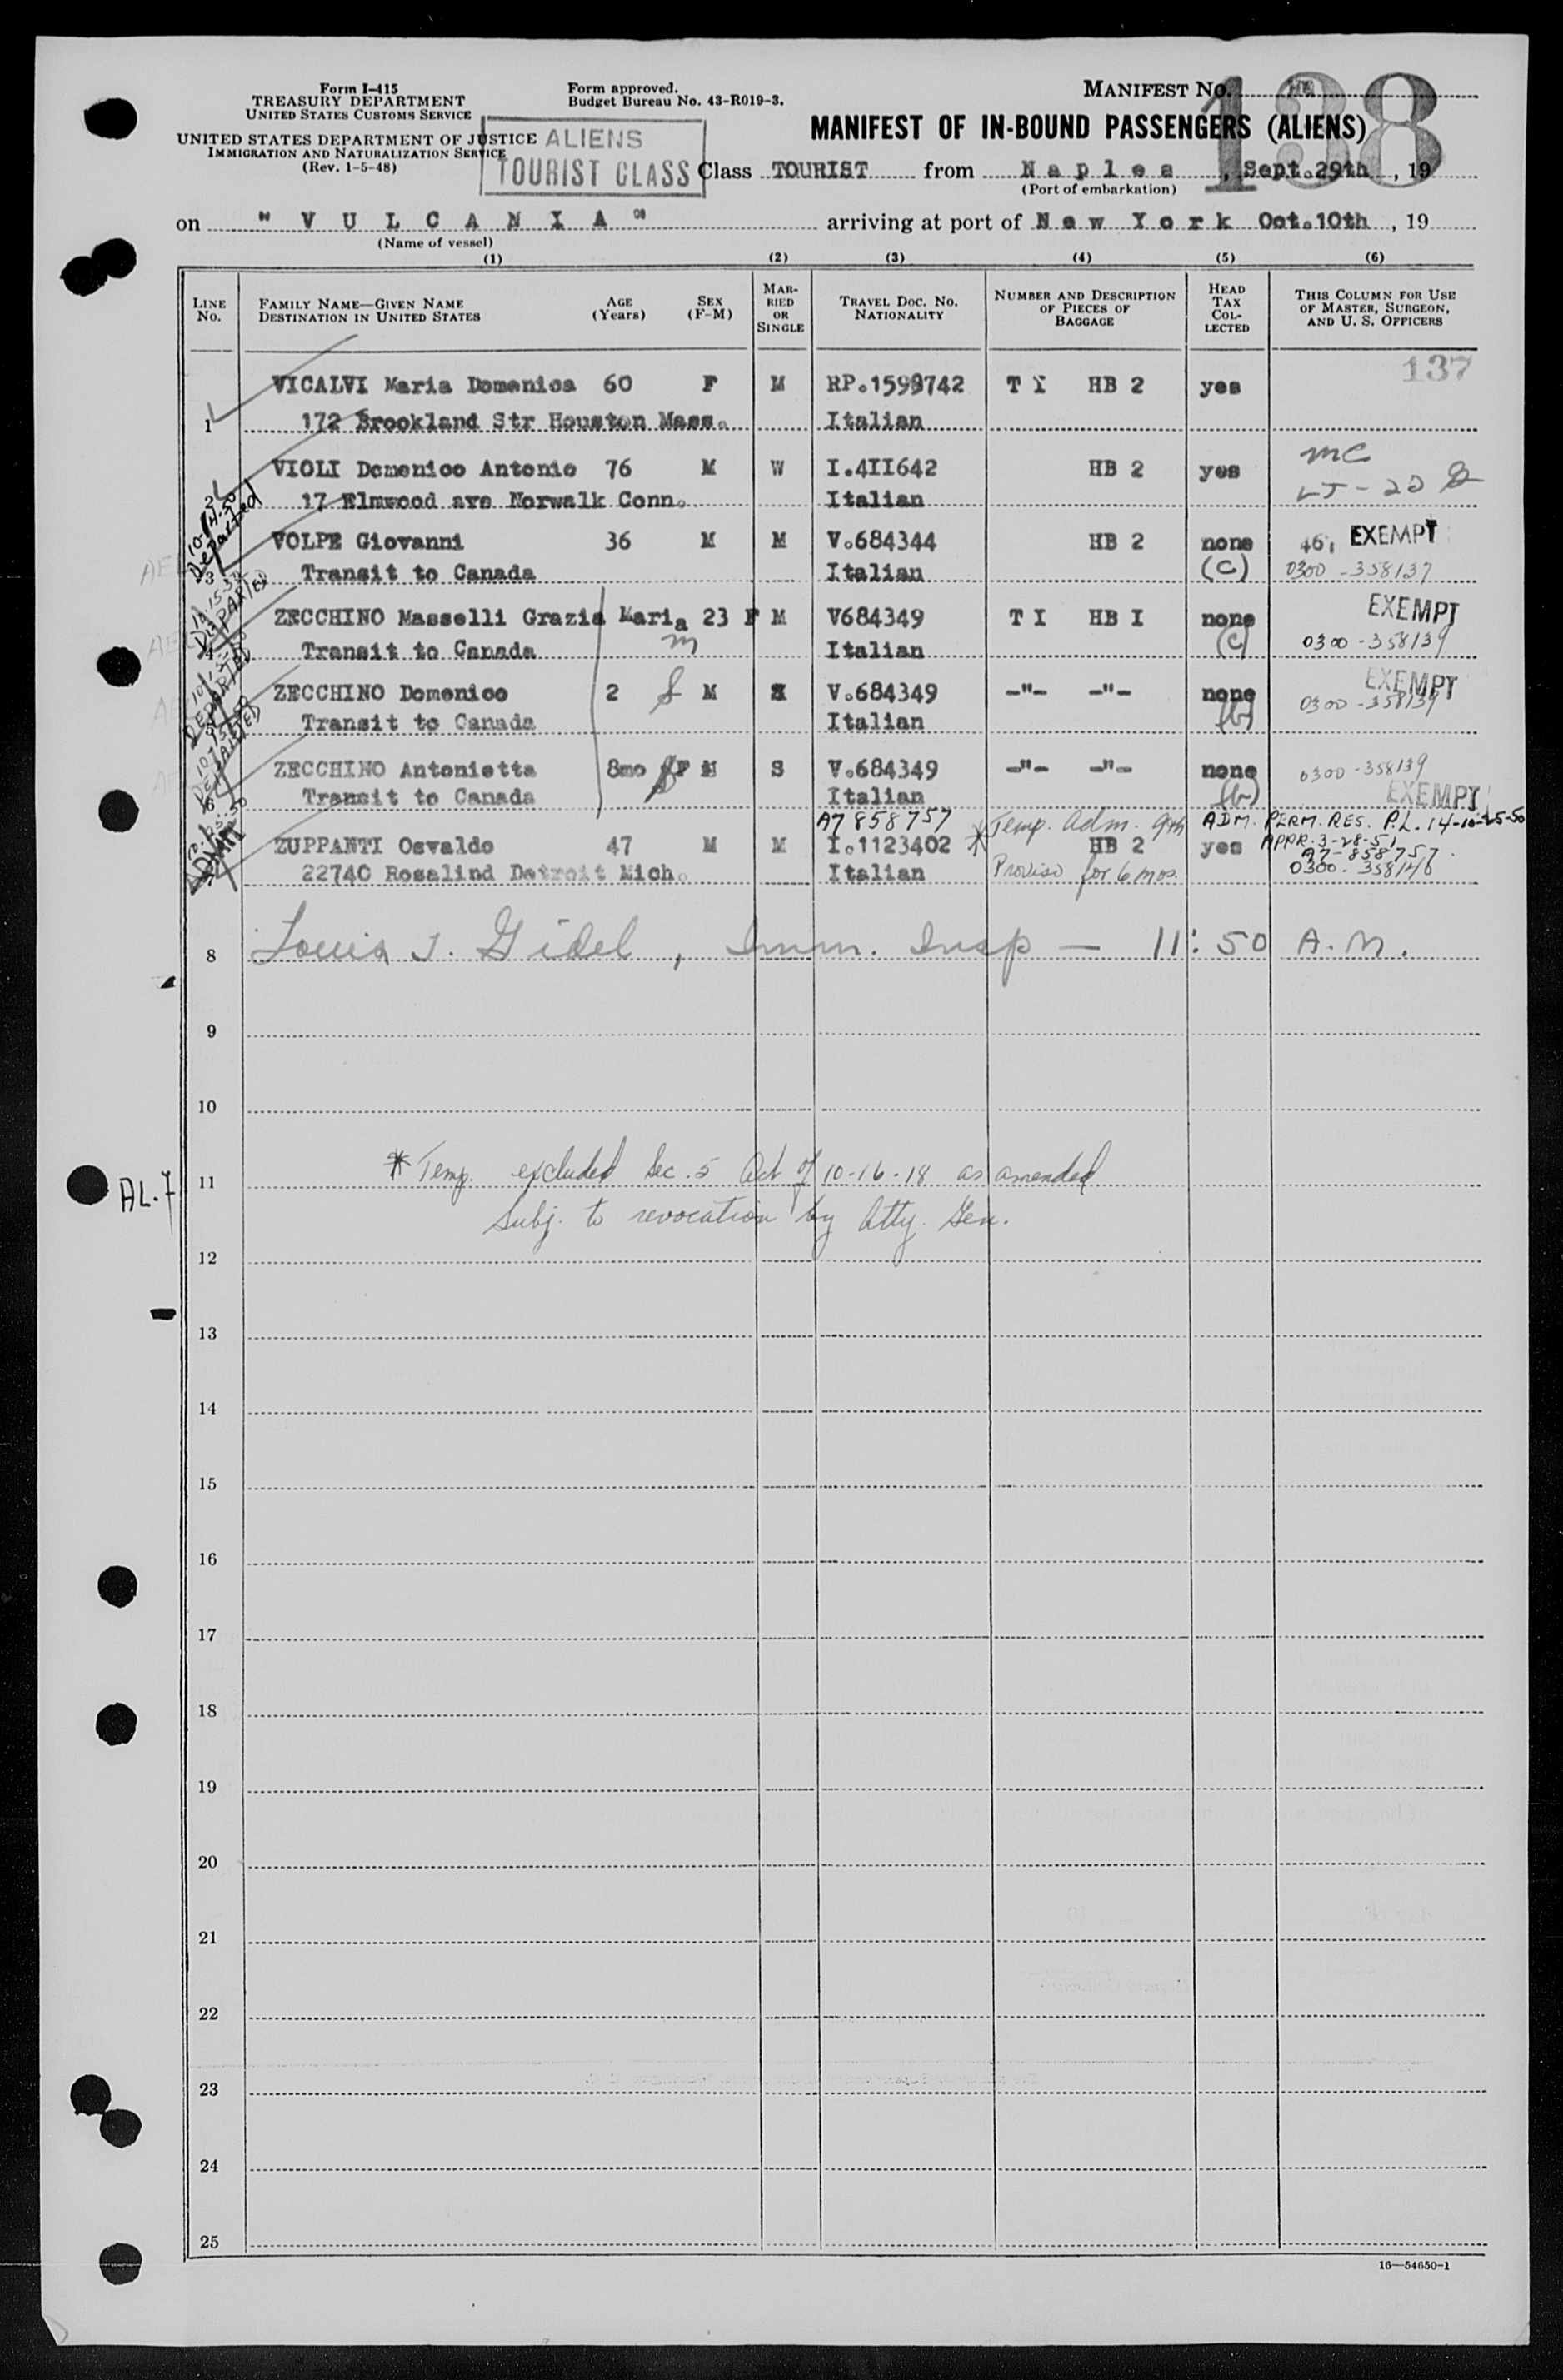 Form I-415
TREASURY DEPARTMENT
UNITED STATES CUSTOMS SERVICE
UNITED STATES DEPARTMENT OF JUSTICE
IMMIGRATION AND NATURALIZATION SERVICE
(Rev. 1-5-48)
Form approved.
Budget Bureau No. 43-R019-3.
ALIENS
TOURIST CLASS
MANIFEST NO.
138
MANIFEST OF IN-BOUND PASSENGERS (ALIENS)
Class TOURIST from Naples, Sept.29th, 19
(Port of embarkation)
on "VULCANIA" arriving at port of New York Oct.10th, 19
(Name of vessel)
(1) (2) (3) (4) (5) (6)
LINE NO. FAMILY NAME—GIVEN NAME DESTINATION IN UNITED STATES AGE (Years) SEX (F-M) MARRIED OR SINGLE TRAVEL DOC. NO. NATIONALITY NUMBER AND DESCRIPTION OF PIECES OF BAGGAGE HEAD TAX COLLECTED THIS COLUMN FOR USE OF MASTER, SURGEON, AND U. S. OFFICERS
137
VICALVI Maria Domenica 60 F M RP.1598742 T I HB 2 yes
1 172 Brookland Str Houston Mass. Italian
VIOLI Domenico Antonio 76 M W I.4II642 HB 2 yes MC
2 17 Elmwood ave Norwalk Conn. Italian
10-14-50 Departed
VOLPE Giovanni 36 M M V.684344 HB 2 none 46, EXEMPT
3 Transit to Canada Italian (C) 0300-358137
DEPARTED
ZECCHINO Masselli Grazia Maria 23 F M V684349 T I HB I none EXEMPT
4 Transit to Canada m Italian (C) 0300-358139
DEPARTED
ZECCHINO Domenico 2 M V.684349 -"- -"- none EXEMPT
Transit to Canada Italian (b) 0300-358139
DEPARTED
ZECCHINO Antonietta 8mo F S V.684349 -"- -"- none 0300-358139
6 Transit to Canada Italian (b) EXEMPT
A7 858757 * Temp. Adm. 9th ADM. PERM. RES. P.L. 14-10-25-50
ZUPPANTI Osvaldo 47 M M I.1123402 HB 2 yes APPR. 3-28-51
A7-858757
22740 Rosalind Detroit Mich. Italian Proviso for 6 mos. 0300-358146
8 Louis J. Gidel, Imm. Insp — 11:50 A.M.
9
10
* Temp. excluded Sec. 5 Act of 10-16-18 as amended
11
AL.7
Subj. to revocation by Atty. Gen.
12
13
14
15
16
17
18
19
20
21
22
23
24
25
16—54650-1